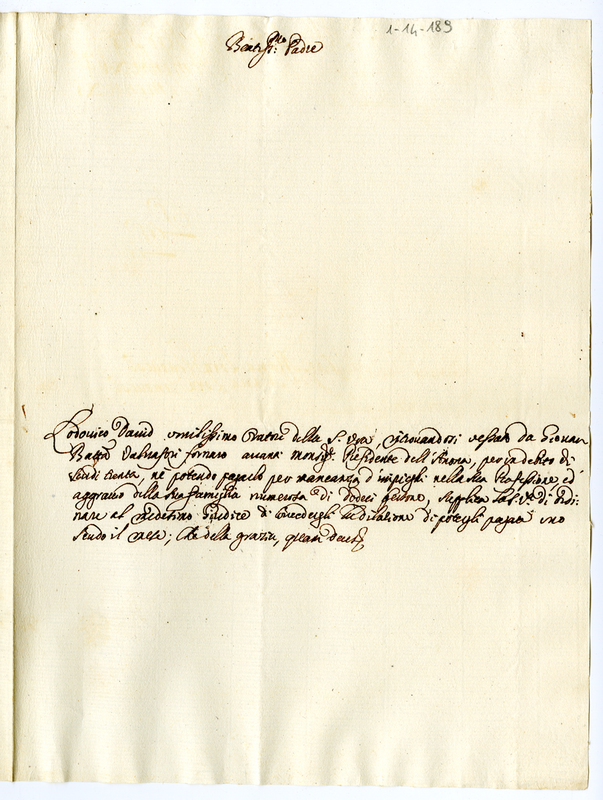 1-14-189
Beatis.mo Padre
Lodovico David umilissimo Oratore della S. V.ra, ritrovandosi vessato da Giovan
Batta fornaro avanti Monsig.r Presidente dell'Anona, per un debito di
Scudi trenta, nè potendo pagarlo per mancanza d'impieghi nella sua Professione, ed
aggravio della sua famiglia numerosa di dodici persone, supplica la S. V. di ordi:
nare al medesimo Giudice di concedergli la dilazione di potergli pagare uno
Scudo il mese; Che della grazia, quam Deus